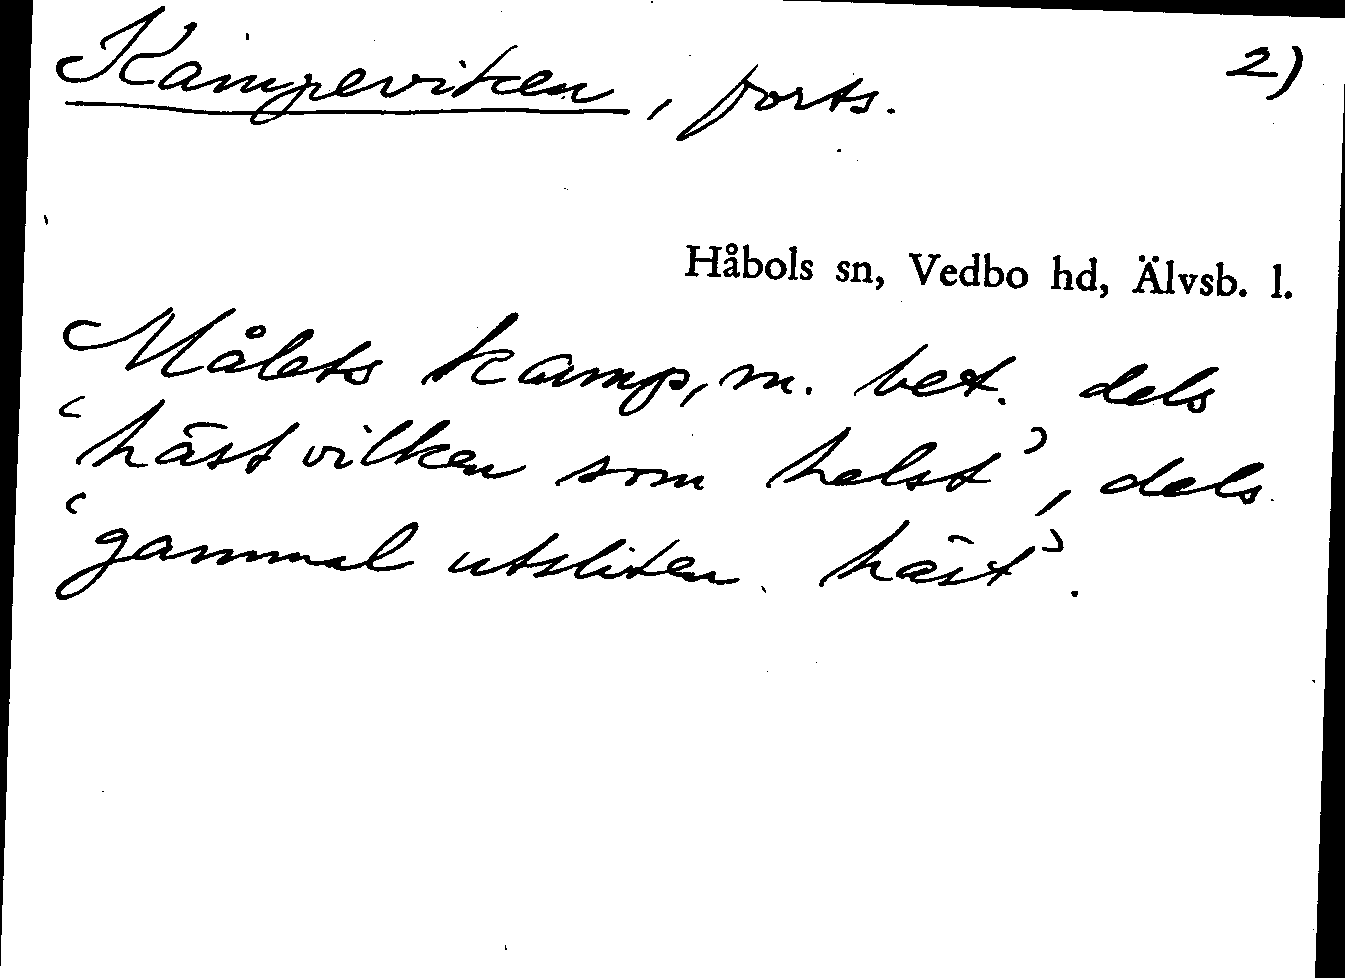 Kampeviken, forts. 2)
Håbols sn, Vedbo hd, Älvsb. l.
Målets kamp, m. bet. dels
‘häst vilken som helst’, dels
‘gammal utsliten häst’.